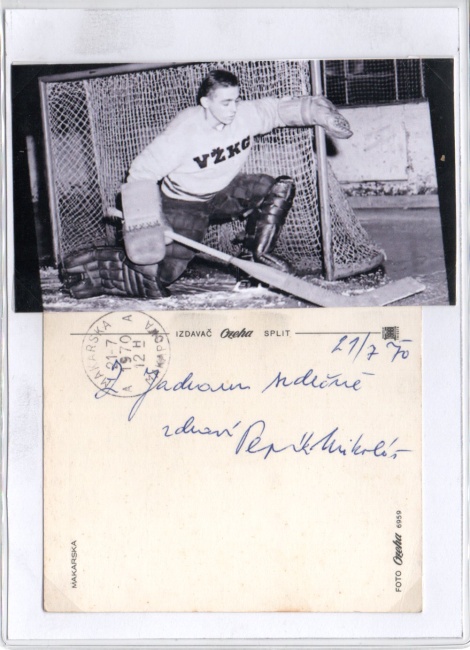 VŽKG
IZDAVAČ Ozeha SPLIT
MAKARSKA
21-7
1970
12 H
A A
МАКАРСКА
21/7 70
Z Jadranu srdečně
zdraví Pepík Mikoláš
MAKARSKA
FOTO Ozeha 6959